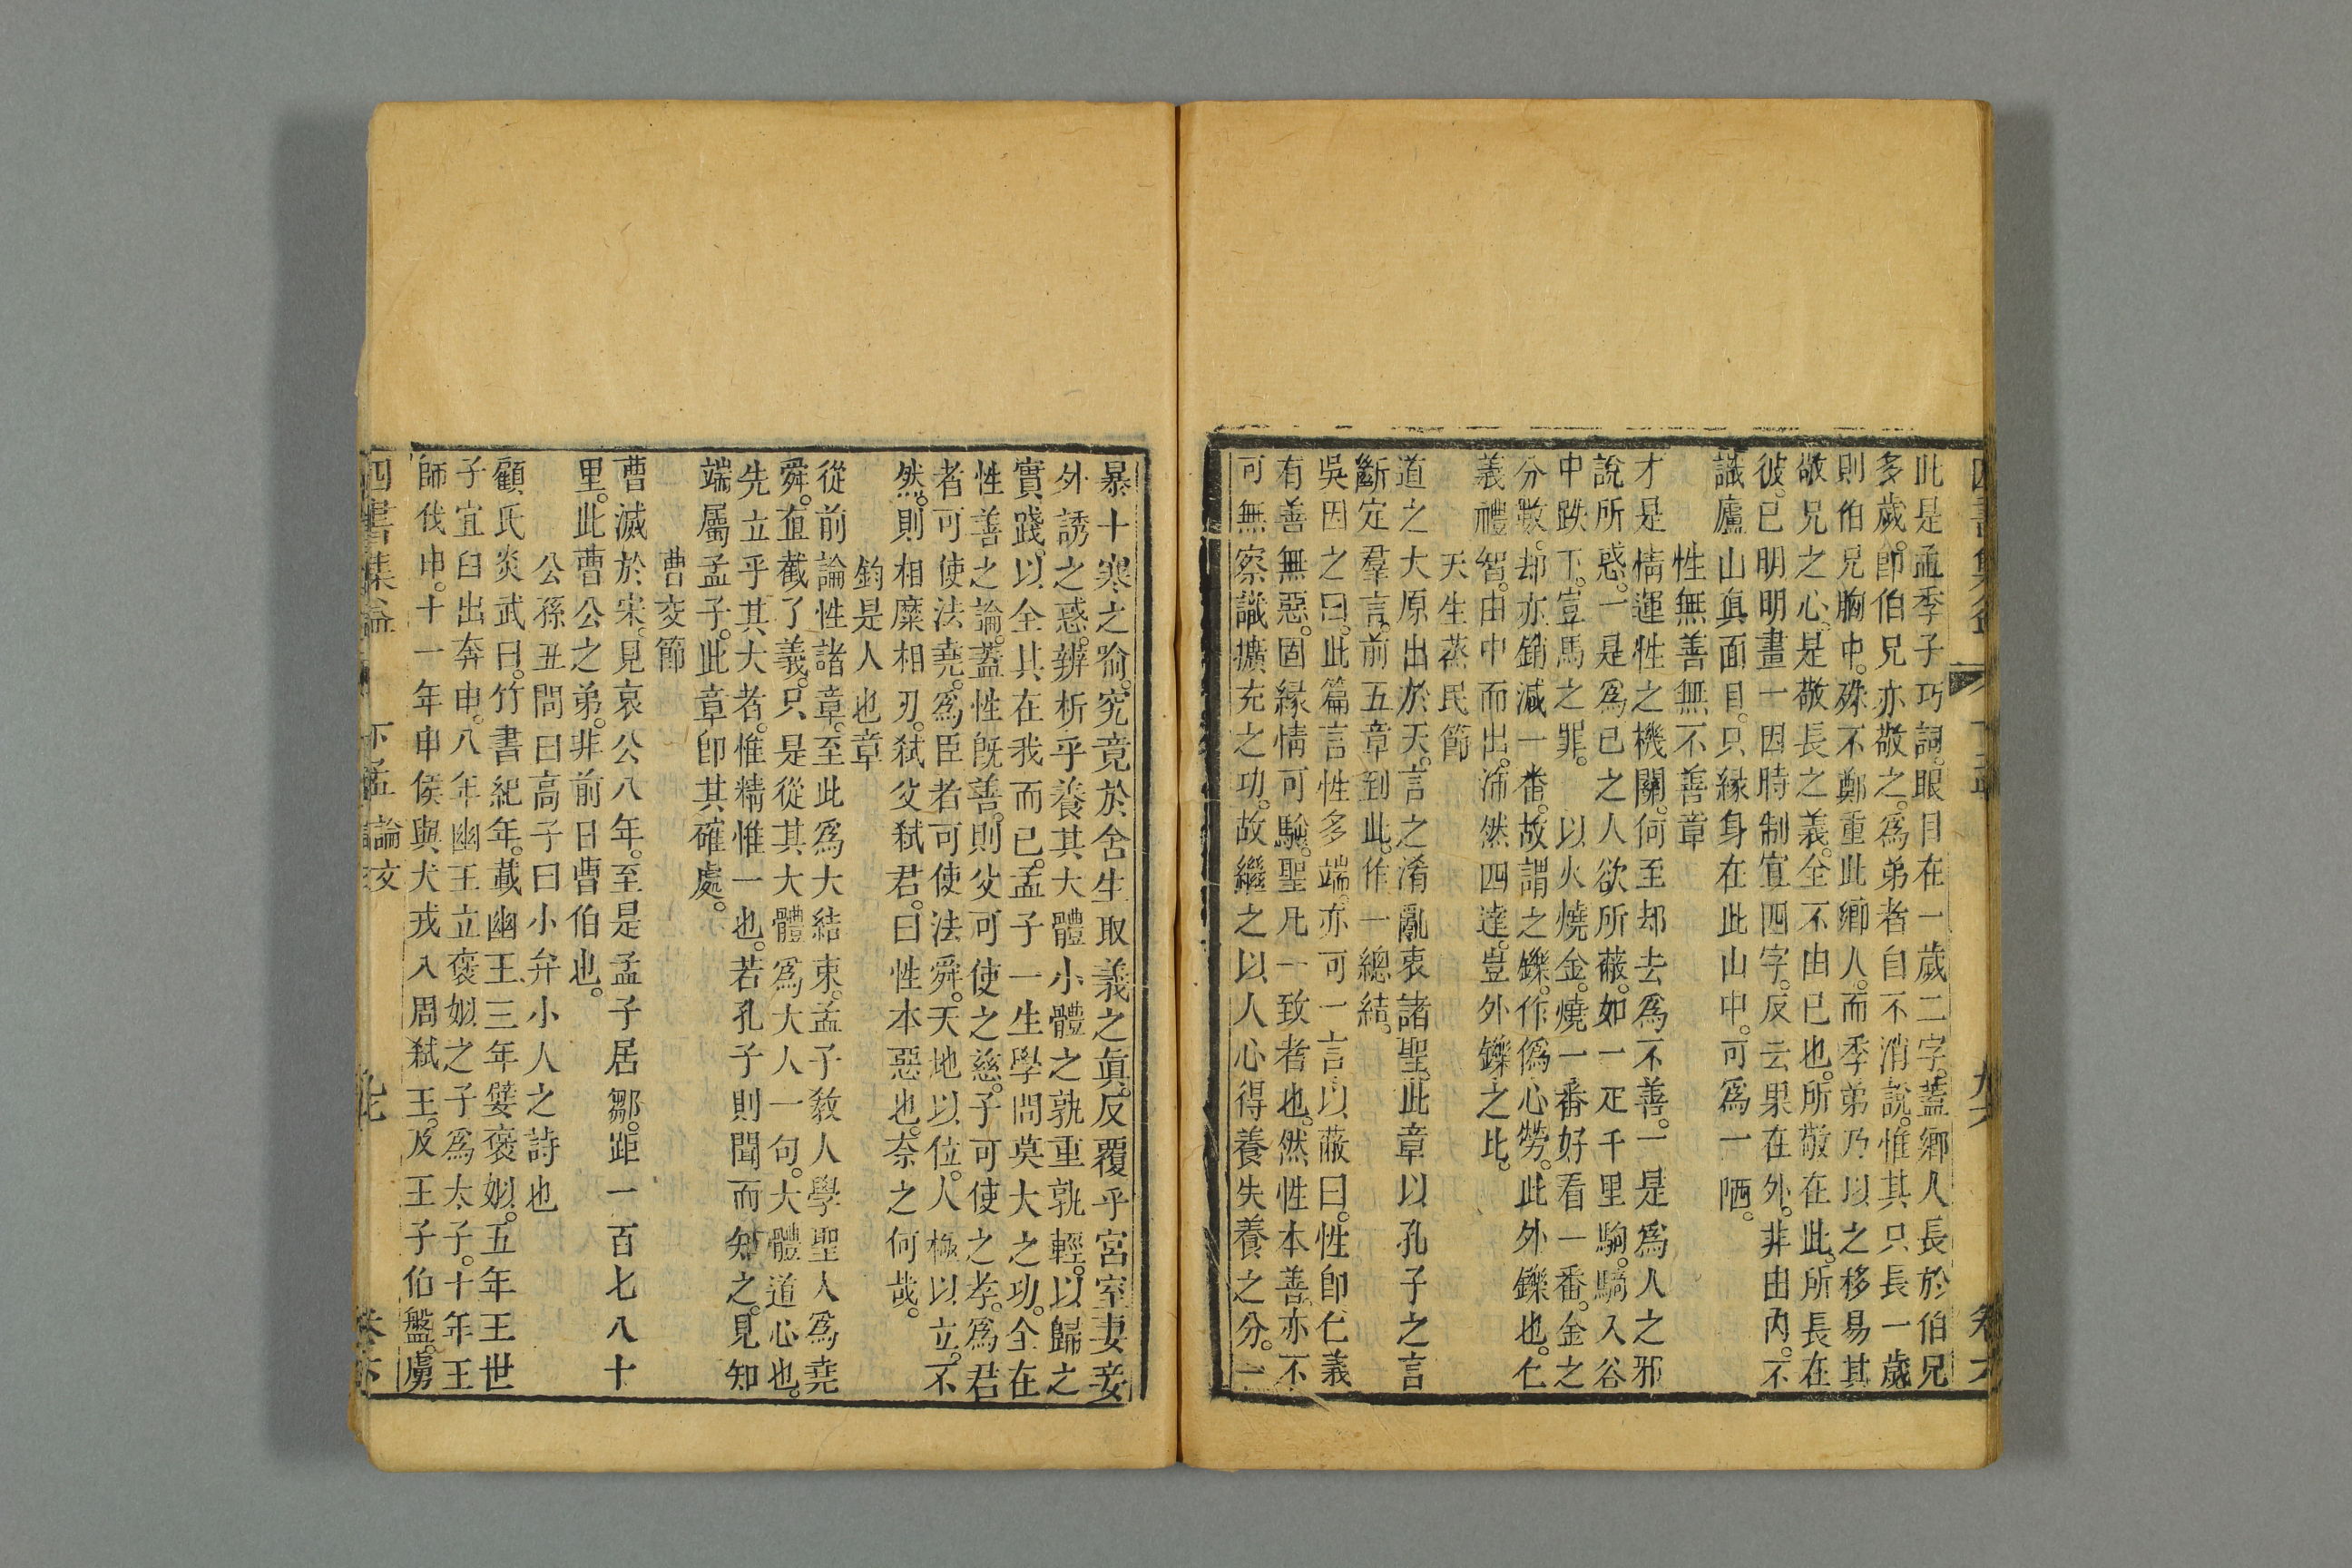 此是孟季子巧詞。眼目在一歲二字。蓋鄉人長於伯兄
多歲。卽伯兄亦敬之。爲弟者自不消說。惟其只長一歲
則伯兄胸中。殊不鄭重此鄉人。而季弟乃以之移易其
敬兄之心。是敬長之義。全不由已也。所敬在此。所長在
彼。已明明畫一因時制宜四字。反云果在外。非由內。不
識廬山眞面目。只緣身在此山中。可爲一哂。
性無善無不善章
才是情運性之機關。何至却去爲不善。一是爲人之邪
說所惑。一是爲已之人欲所蔽。如一疋千里駒。騎入谷
中跌下。豈馬之罪。以火燒金。燒一番好看一番。金之
分數。却亦銷減一番。故謂之鑠。作僞心勞。此外鑠也。仁
義禮智。由中而出。沛然四達。豈外鑠之比。
天生蒸民節
道之大原出於天。言之淆亂衷諸聖。此章以孔子之言
斷定羣言。前五章到此。作一總結。
吳因之曰。此篇言性多端。亦可一言以蔽曰。性卽仁義
有善無惡。固緣情可驗。聖凡一致者也。然性本善。亦不
可無察識擴充之功。故繼之以人心得養失養之分。一
暴十寒之喻。究竟於舍生取義之眞。反覆乎宮室妻妾
外誘之惑。辨析乎養其大體小體之孰重孰輕。以歸之
實踐。以全其在我而已。孟子一生學問莫大之功。全在
性善之論。蓋性旣善。則父可使之慈。子可使之孝。爲君
者可使法堯。爲臣者可使法舜。天地以位。人極以立。不
然。則相糜相刃。弑父弑君。曰性本惡也。奈之何哉。
鈞是人也章
從前論性諸章。至此爲大結束。孟子敎人學聖人爲堯
舜。直截了義。只是從其大體爲大人一句。大體道心也。
先立乎其大者。惟精惟一也。若孔子則聞而知之。見知
端屬孟子。此章卽其確處。
曹交節
曹滅於宋。見哀公八年。至是孟子居鄒。距一百七八十
里。此曹公之弟。非前日曹伯也。
公孫丑問曰高子曰小弁小人之詩也
顧氏炎武曰。竹書紀年。載幽王三年嬖褒姒。五年王世
子宜臼出奔申。八年幽王立褒姒之子爲太子。十年王
師伐申。十一年申侯與犬戎入周弑王。及王子伯盤。虜